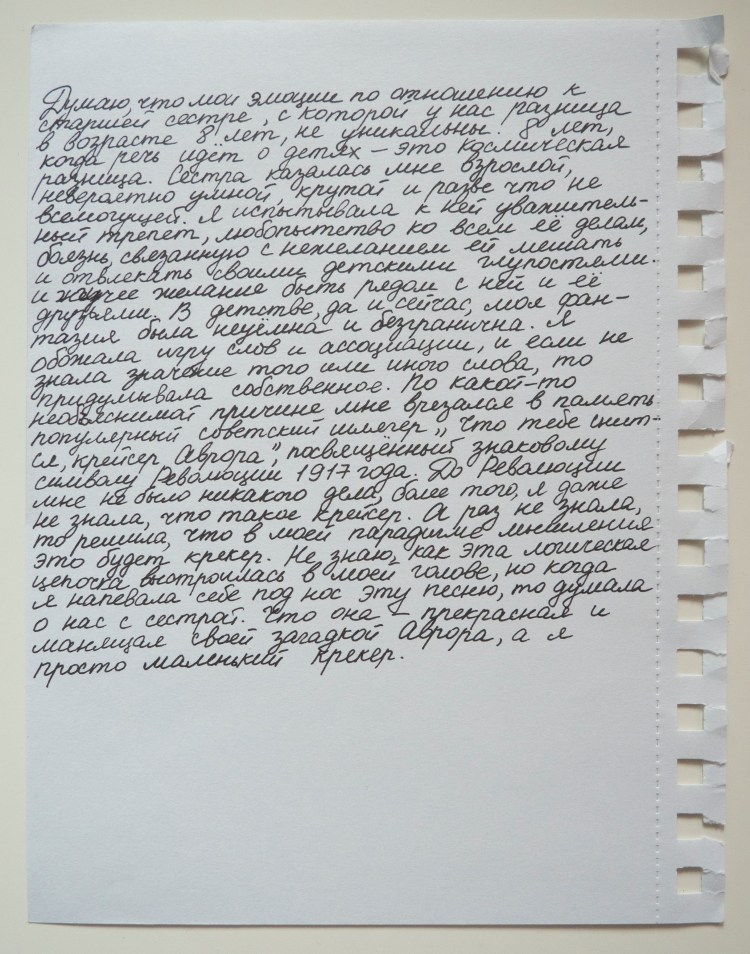 Думаю, что мои эмоции по отношению к
старшей сестре, с которой у нас разница
в возрасте 8 лет, не уникальны. 8 лет,
когда речь идёт о детях – это космическая
разница. Сестра казалась мне взрослой,
невероятно умной, крутой и разве что не
всемогущей. Я испытывала к ней уважитель-
ный трепет, любопытство ко всем её делам,
боязнь, связанную с нежеланием ей мешать
и отвлекать своими детскими глупостями.
и жгучее желание быть рядом с ней и её
друзьями. В детстве, да и сейчас, моя фан-
тазия была неуёмна и безгранична. Я
обожала игру слов и ассоциации, и если не
знала значение того или иного слова, то
придумывала собственное. По какой-то
необъяснимой причине мне врезался в память
популярный советский шлягер „Что тебе снит-
ся, крейсер Аврора", посвящённый знаковому
символу Революции 1917 года. До Революции
мне не было никакого дела, более того, я даже
не знала, что такое крейсер. А раз не знала,
то решила, что в моей парадигме мышления
это будет крекер. Не знаю, как эта логическая
цепочка выстроилась в моей голове, но когда
я напевала себе под нос эту песню, то думала
о нас с сестрой. Что она – прекрасная и
манящая своей загадкой Аврора, а я
просто маленький крекер.